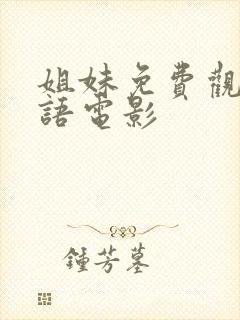 姐妹免費觀
語電影
鍾芳墓